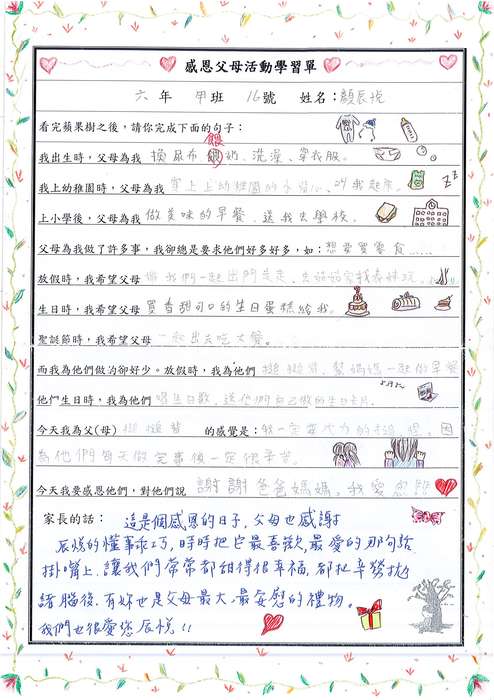 感恩父母活動學習單
六 年 甲班 16號 姓名：顏辰悅
看完蘋果樹之後，請你完成下面的句子：
我出生時，父母為我 換尿布、餵奶、洗澡、穿衣服。
我上幼稚園時，父母為我 穿上上幼稚園的 叫我起床。
上小學後，父母為我 做美味的早餐、送我去學校。
父母為我做了許多事，我卻總是要求他們好多好多，如：想要買零食......
放假時，我希望父母 我們一起出門走走、去
生日時，我希望父母 買香甜可口的生日蛋糕給我。
聖誕節時，我希望父母 一起出去吃大餐。
而我為他們做的卻好少。放假時，我為他們 幫媽媽一起做早餐
他們生日時，我為他們 唱生日歌、送他們自己做的生日卡片。
今天我為父(母) 的感覺是：我一定要大力的 因
為他們每天做完事後一定很辛苦。
今天我要感恩他們，對他們說 謝謝爸爸媽媽，我愛您們
家長的話： 這是個感恩的日子，父母也感謝
辰悅的懂事乖巧，時時把它最喜歡，最愛的那句話
掛嘴上，讓我們常常都甜得很幸福，都把辛勞拋
諸腦後。有妳也是父母最大、最安慰的禮物。
我們也很愛您辰悅!!